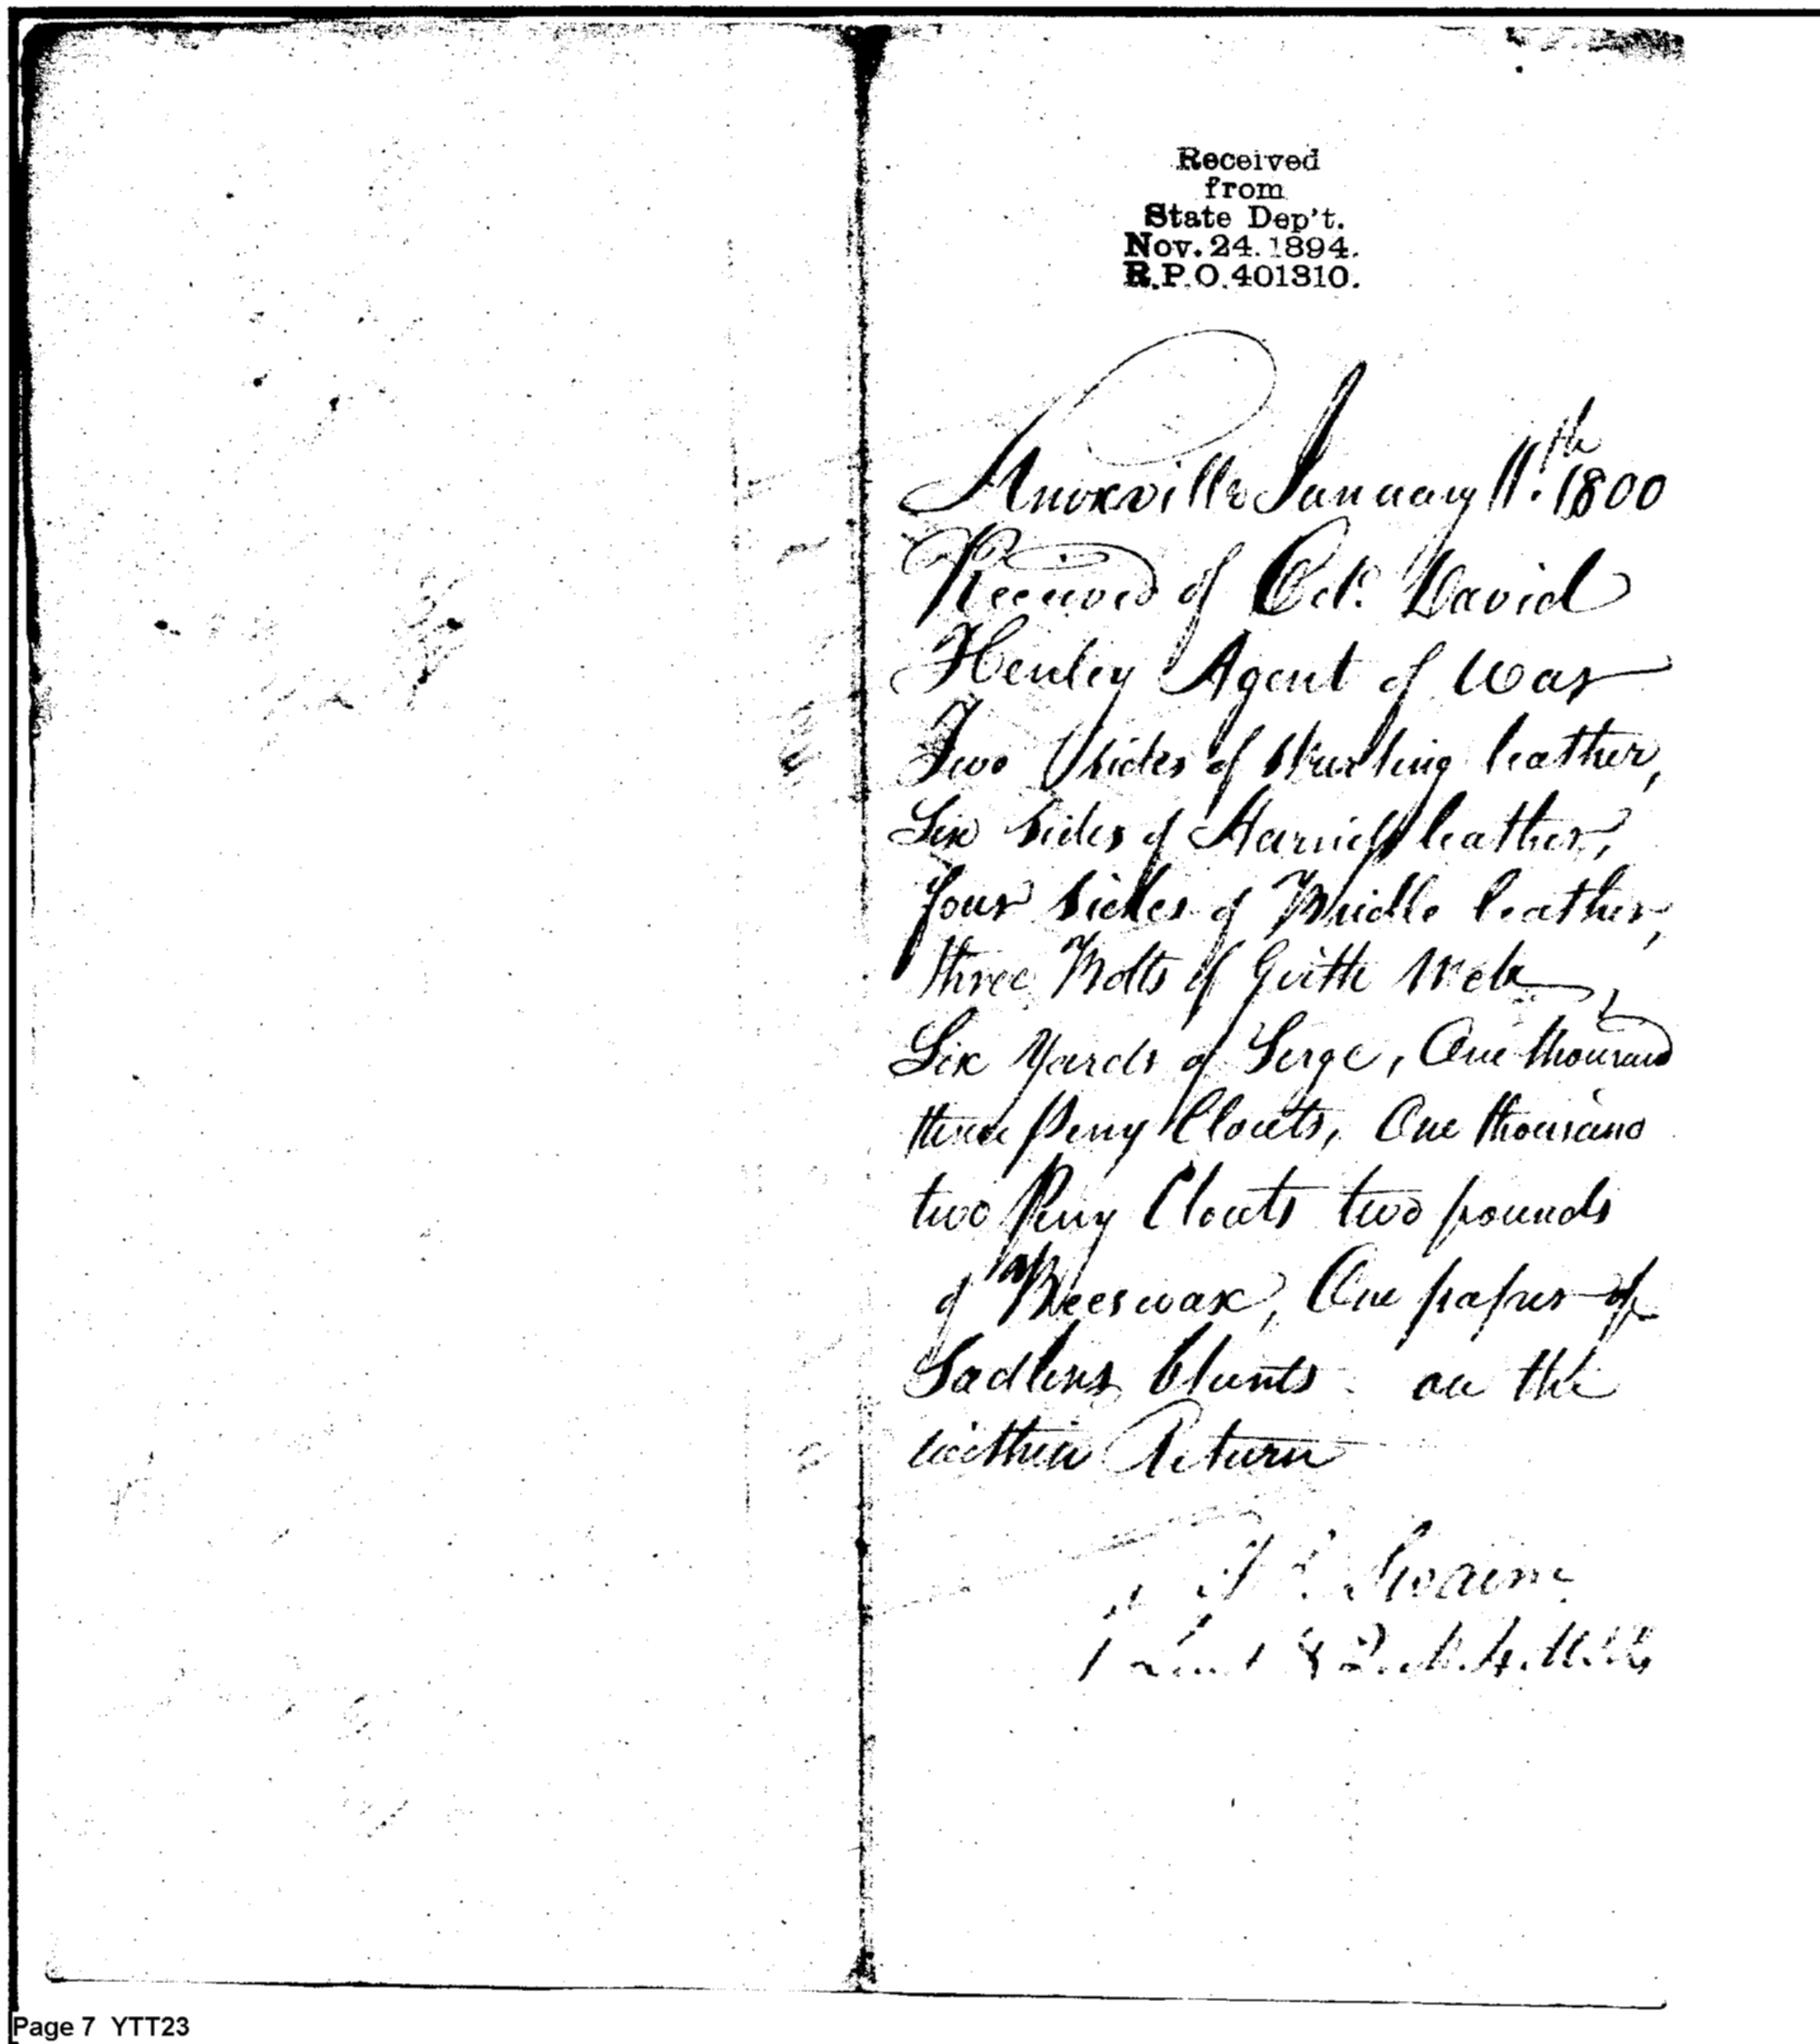 Received
from
State Dep't.
Nov. 24. 1894.
R.P.O. 401310.
Knoxville January 11.th 1800
Received of Colo. David
Henley Agent of War
Two sides of skirting leather,
Six sides of Harness leather,
four sides of Bridle leather,
three Bolts of Girth Web,
Six Yards of Serge, One thousand
three Peny Clouts, One thousand
two Peny Clouts two pounds
of Beeswax, One paper of
Sadlers blunts on the
within Return
Swaine
1 Lieut &
Page 7 YTT23